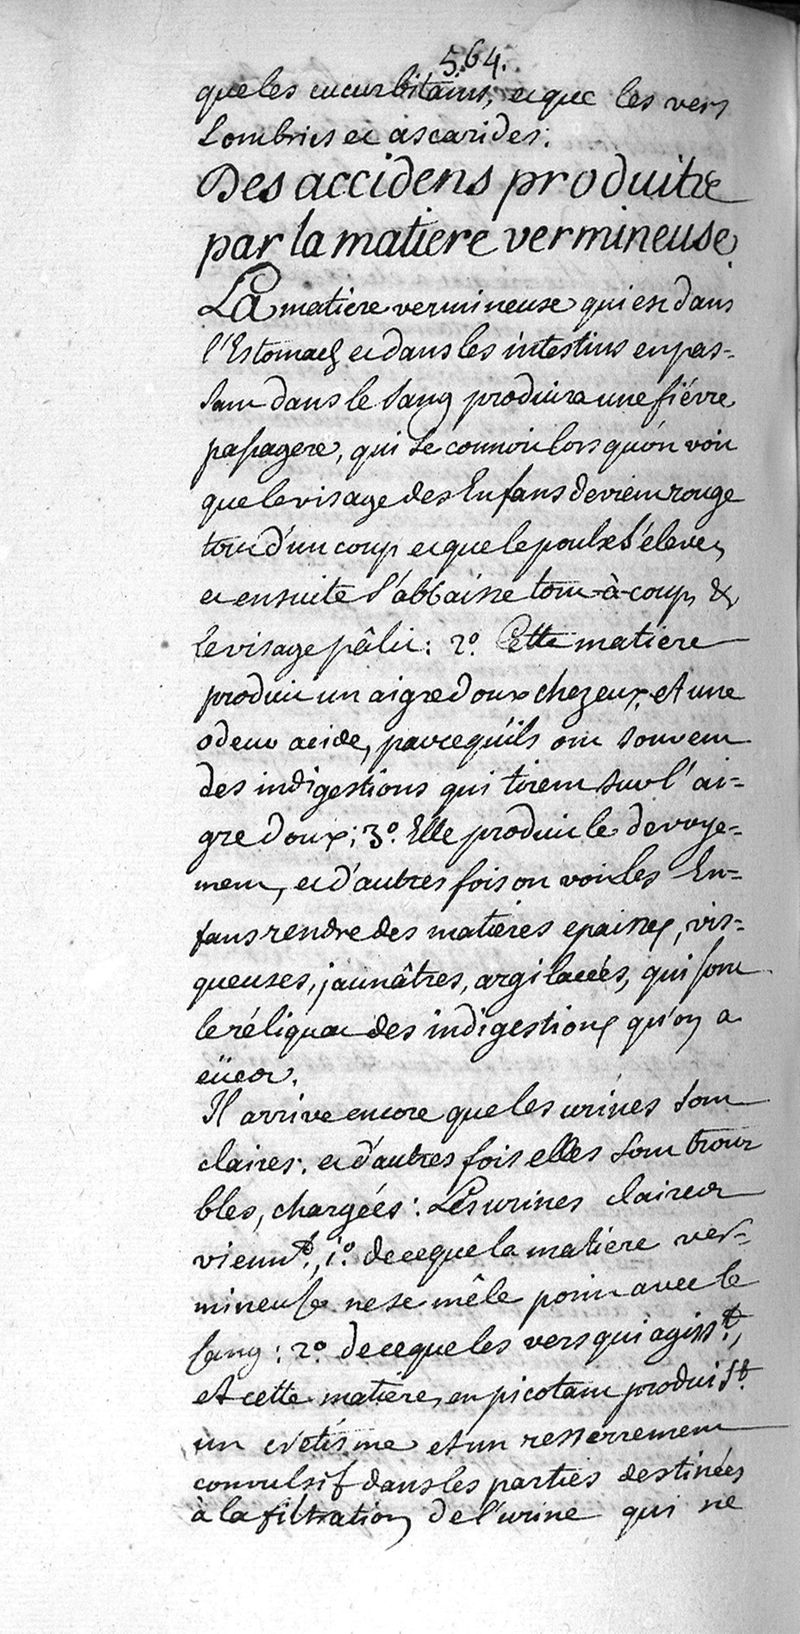 564.
que les cucurbitains, et que les vers
Lombrics et ascarides.
Des accidens produits
par la matiere vermineuse.
La matiere vermineuse qui est dans
l'Estomach et dans les intestins en pas-
sant dans le sang produira une fiévre
passagere, qui se connoit lorsqu'on voit
que le visage des Enfans devient rouge
tout d'un coup et que le poulx s'éleve,
et ensuite s'abbaisse tout-à-coup, &
le visage pâlit: 2.° Cette matiere
produit un aigre doux chez eux, et une
odeur acide, parcequ'ils ont souvent
des indigestions qui tirent sur l'ai-
gre doux; 3.° Elle produit le devoye-
ment, et d'autres fois on voit les En-
fans rendre des matieres epaisses, vis-
queuses, jaunâtres, argilacées, qui sont
le réliquat des indigestions qu'on a
eües.
Il arrive encore que les urines sont
claires, et d'autres fois elles sont trou-
bles, chargées: Les urines claires
vienn.t, 1.° de ce que la matiere ver-
mineuse ne se mêle point avec le
sang: 2.° de ce que les vers qui agiss.t,
et cette matiere, en picotant produis.t
un erétisme et un resserrement
convulsif dans les parties destinées
à la filtration de l'urine qui ne